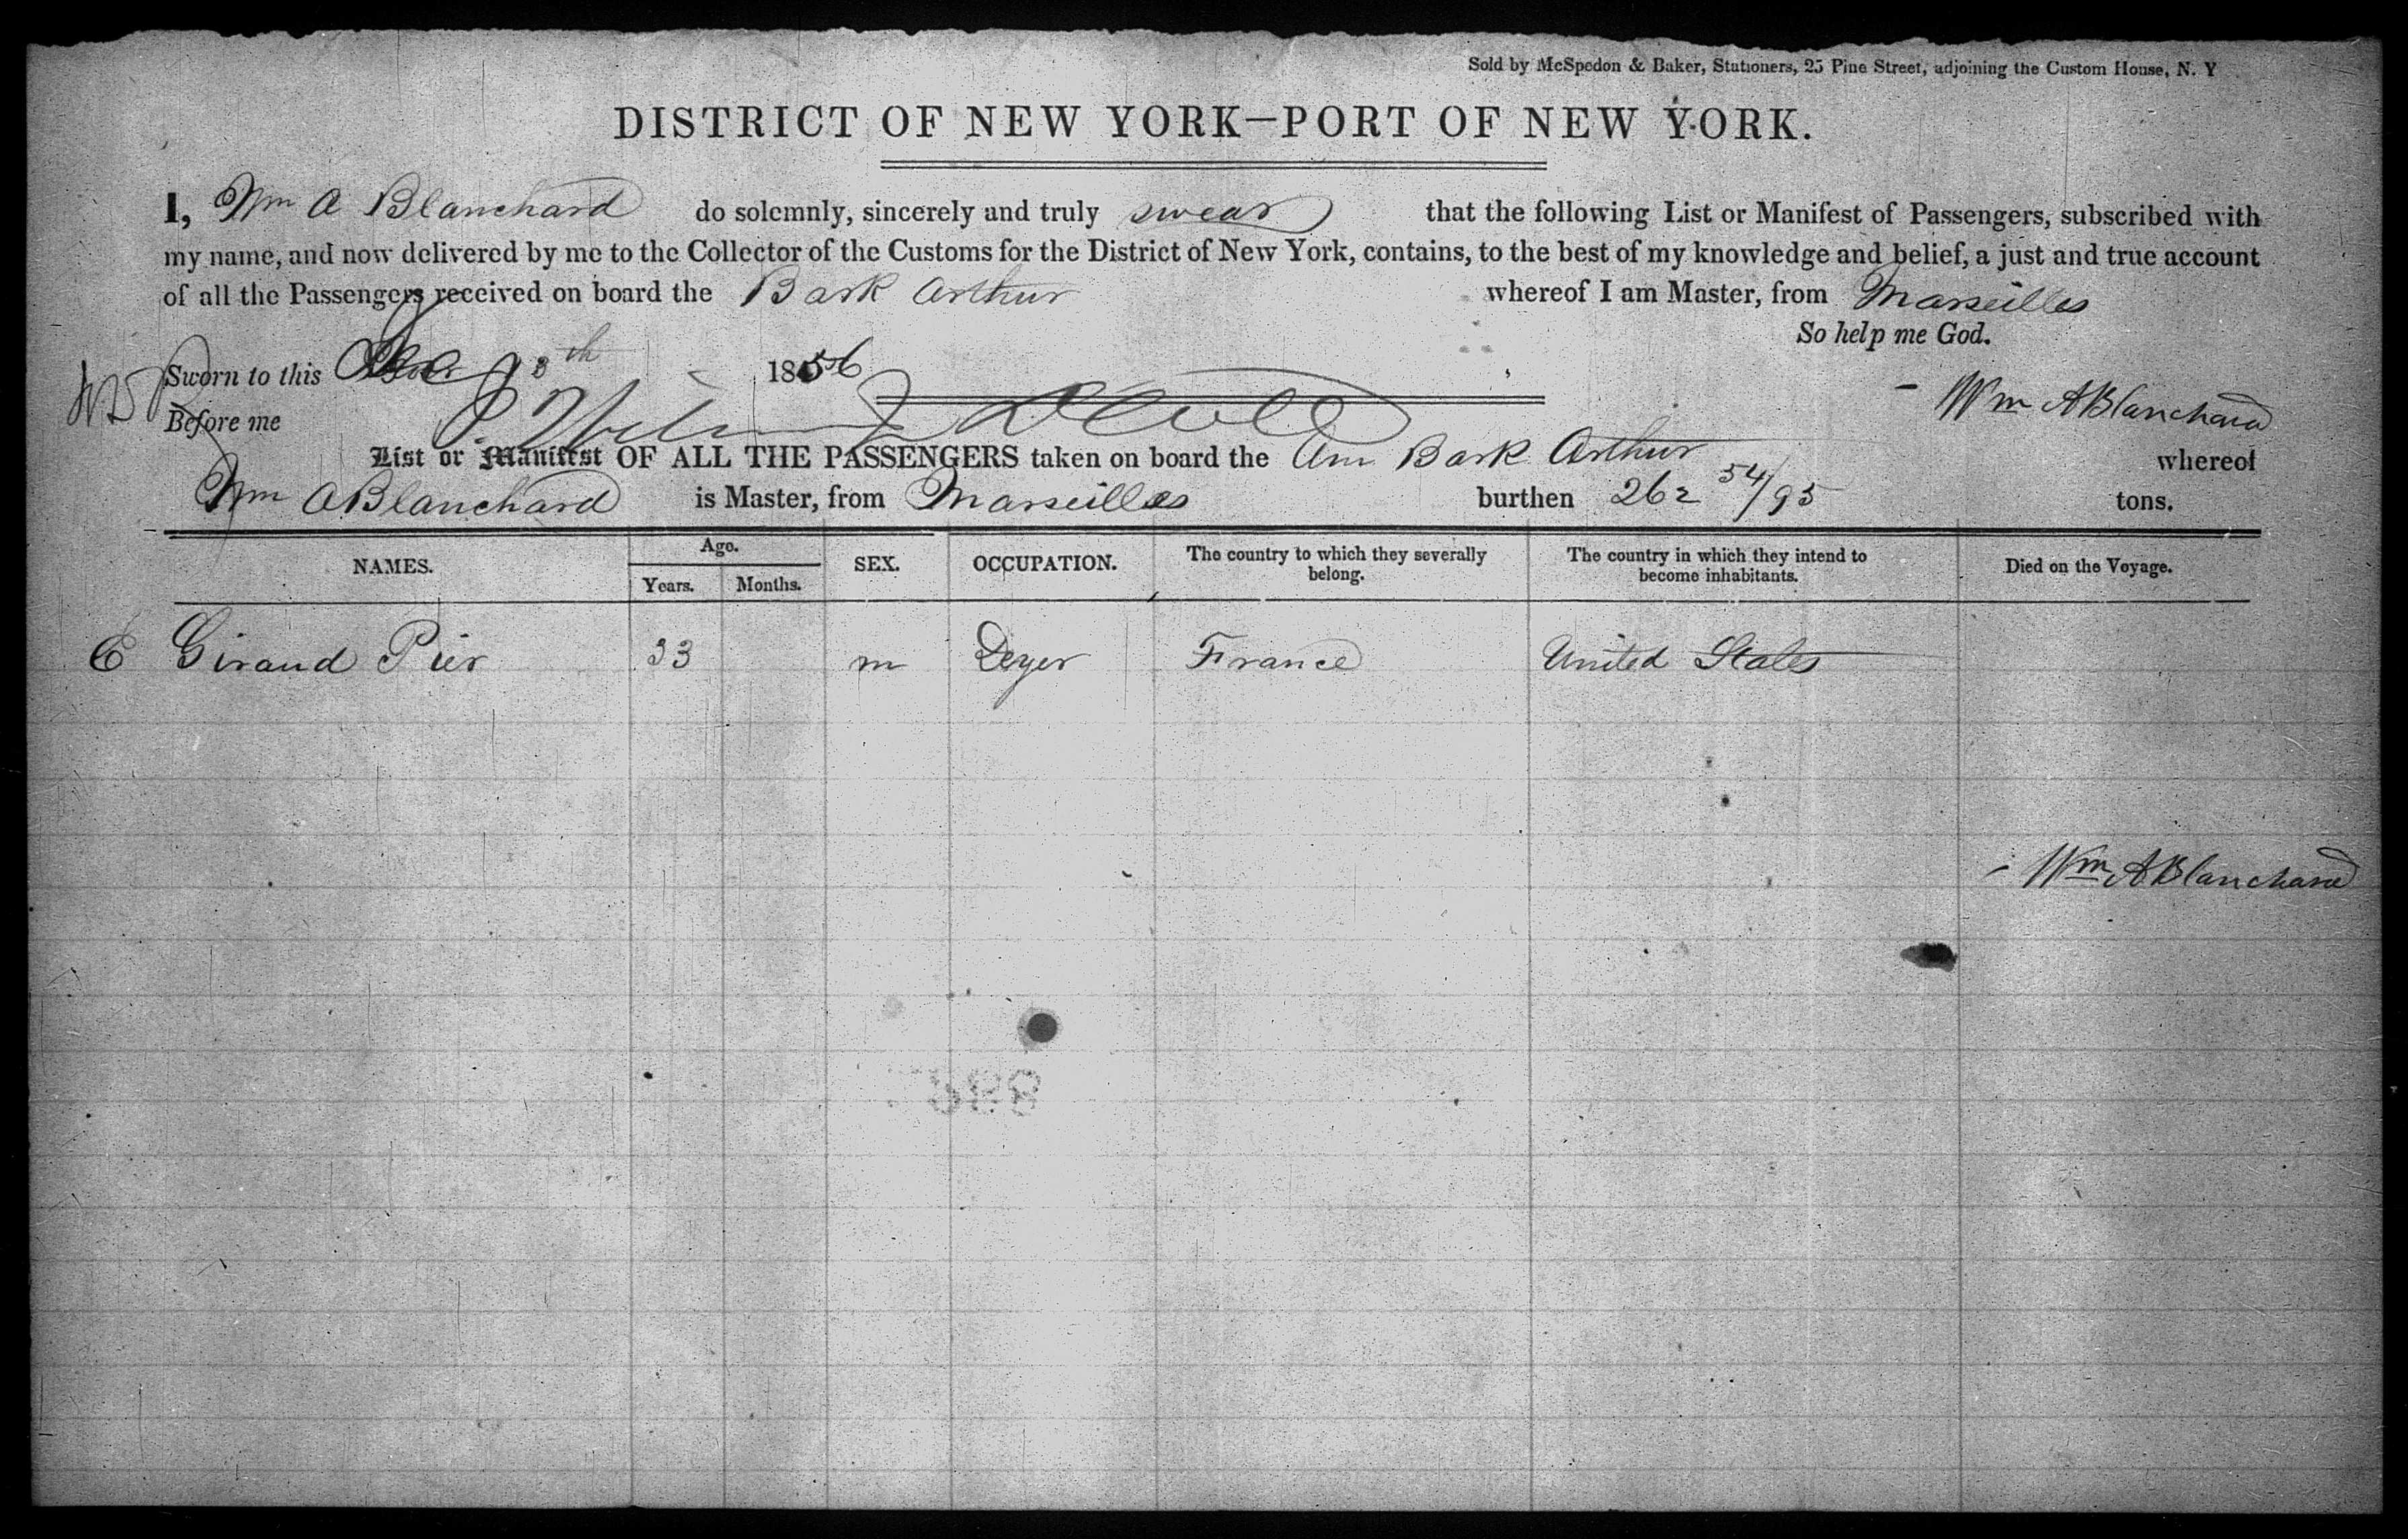 Sold by McSpedon & Baker, Stationers, 25 Pine Street, adjoining the Custom House, N. Y
DISTRICT OF NEW YORK—PORT OF NEW YORK.
I, Wm A Blanchard do solemnly, sincerely and truly swear that the following List or Manifest of Passengers, subscribed with
my name, and now delivered by me to the Collector of the Customs for the District of New York, contains, to the best of my knowledge and belief, a just and true account
of all the Passengers received on board the Bark Arthur whereof I am Master, from Marseilles
So help me God.
Sworn to this 8th 1856
Wm A Blanchard
Before me
List or Manifest OF ALL THE PASSENGERS taken on board the Am Bark Arthur whereof
Wm A Blanchard is Master, from Marseilles burthen 262 54/95 tons.
NAMES. Age. Years. Months. SEX. OCCUPATION. The country to which they severally belong. The country in which they intend to become inhabitants. Died on the Voyage.
Giraud Pier 33 m Deyer France United States
Wm A Blanchard